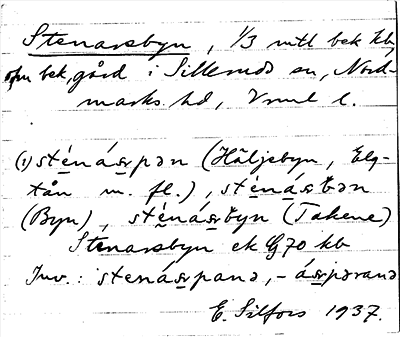 Stenarsbyn, 1/3 mtl bek kb,
ofm bek, gård i Sillerud sn, Nord-
marks hd, Vrml l.
(1) sténás̱pən (Håljebyn, Elg-
tån m. fl.), sténás̱b̌ən
(Byn), sténás̱b̌yn (Takene)
Stenarsbyn ek G70 kb
Inv.: stenás̱panə, -ás̱pəranə
E. Silfors 1937.